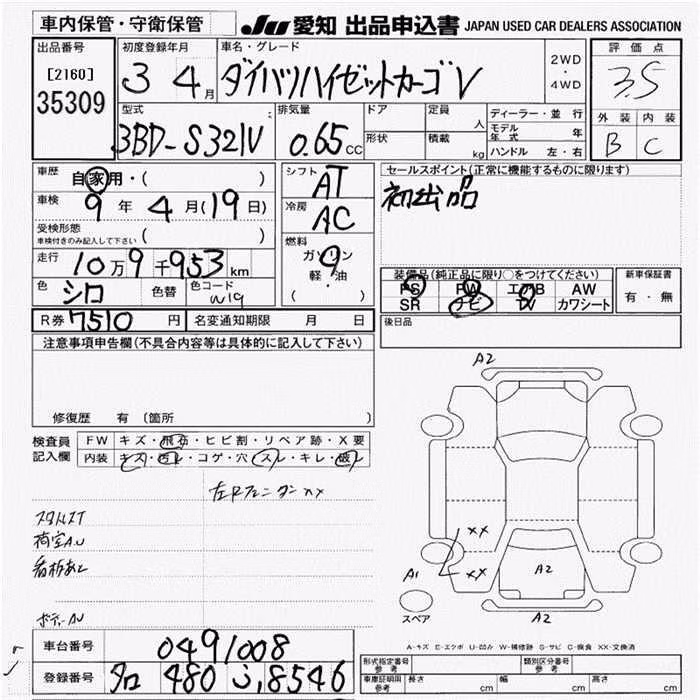 車内保管・守衛保管
JU 愛知 出品申込書 JAPAN USED CAR DEALERS ASSOCIATION
出品番号
[2160]
35309
初度登録年月
3 4月
車名・グレード
ダイハツハイゼットカーゴV
2WD
・
4WD
評価点
3.5
外装 内装
B C
型式
3BD-S321V
排気量
0.65cc
ドア
形状
定員 人
積載 kg
ディーラー・並行
モデル年式 年
ハンドル 左・右
車歴
自家用・( )
車検
9年4月(19日)
受検形態
車検付きのみ記入して下さい ( )
走行
10万9千953km
色
シロ
色替
色コード
W19
シフト
AT
冷房
AC
燃料
ガソリン
軽・油
( )
セールスポイント(正常に機能するものに限ります)
初出品
装備品(純正品に限り○をつけてください)
PS PW エアB AW
SR ナビ TV カワシート
新車保証書
有・無
R券 7510円
名変通知期限 月 日
後日品
注意事項申告欄(不具合内容等は具体的に記入して下さい)
修復歴 有 〔箇所 〕
検査員記入欄
FW キズ・飛石・ヒビ割・リペア跡・X要
内装 キズ・汚レ・コゲ・穴・スレ・キレ・破レ
左Rフェンダーxx
荷室AU
看板あと
ボデーAU
A2
xx
xx
A1
A2
A2
スペア
A-キズ E-エクボ U-凹み W-補修跡 S-サビ C-腐食 XX-交換済
車台番号
0491008
登録番号
480 8546
形式指定番号
参考
類別区分番号
参考
車庫証明用
参考
長さ cm
幅 cm
高さ cm